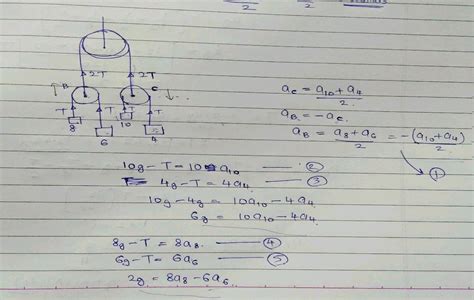 2T 2T
B C
T T T T
8 6 10 4
a_c = (a₁₀ + a₄)/2
a_B = -a_c
a_B = (a₈ + a₆)/2 = -(a₁₀ + a₄)/2
①
10g - T = 10 a₁₀ ②
4g - T = 4a₄ ③
10g - 4g = 10a₁₀ - 4a₄
6g = 10a₁₀ - 4a₄
8g - T = 8a₈ ④
6g - T = 6a₆ ⑤
2g = 8a₈ - 6a₆